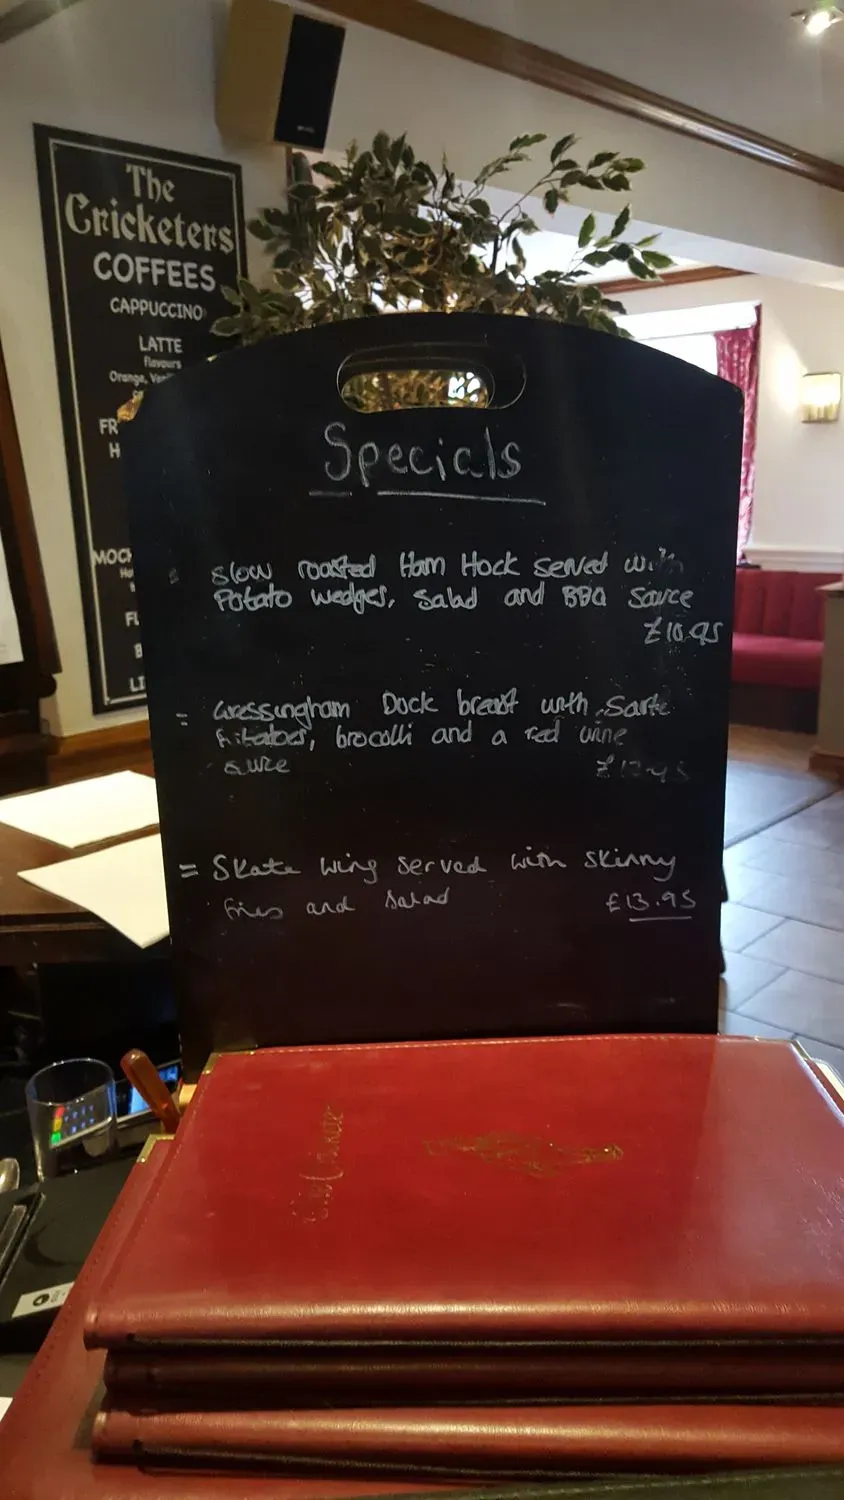 The
Cricketers
COFFEES
CAPPUCCINO
LATTE
flavours
Orange,
FR
H
MOCH
Specials
Slow roasted Ham Hock served with
Potato wedges, Salad and BBQ Sauce
£10.95
= Gressingham Duck breast with Sarte
brocolli and a red wine
= Skate wing served with skinny
fries and salad £13.95
The Cricketer